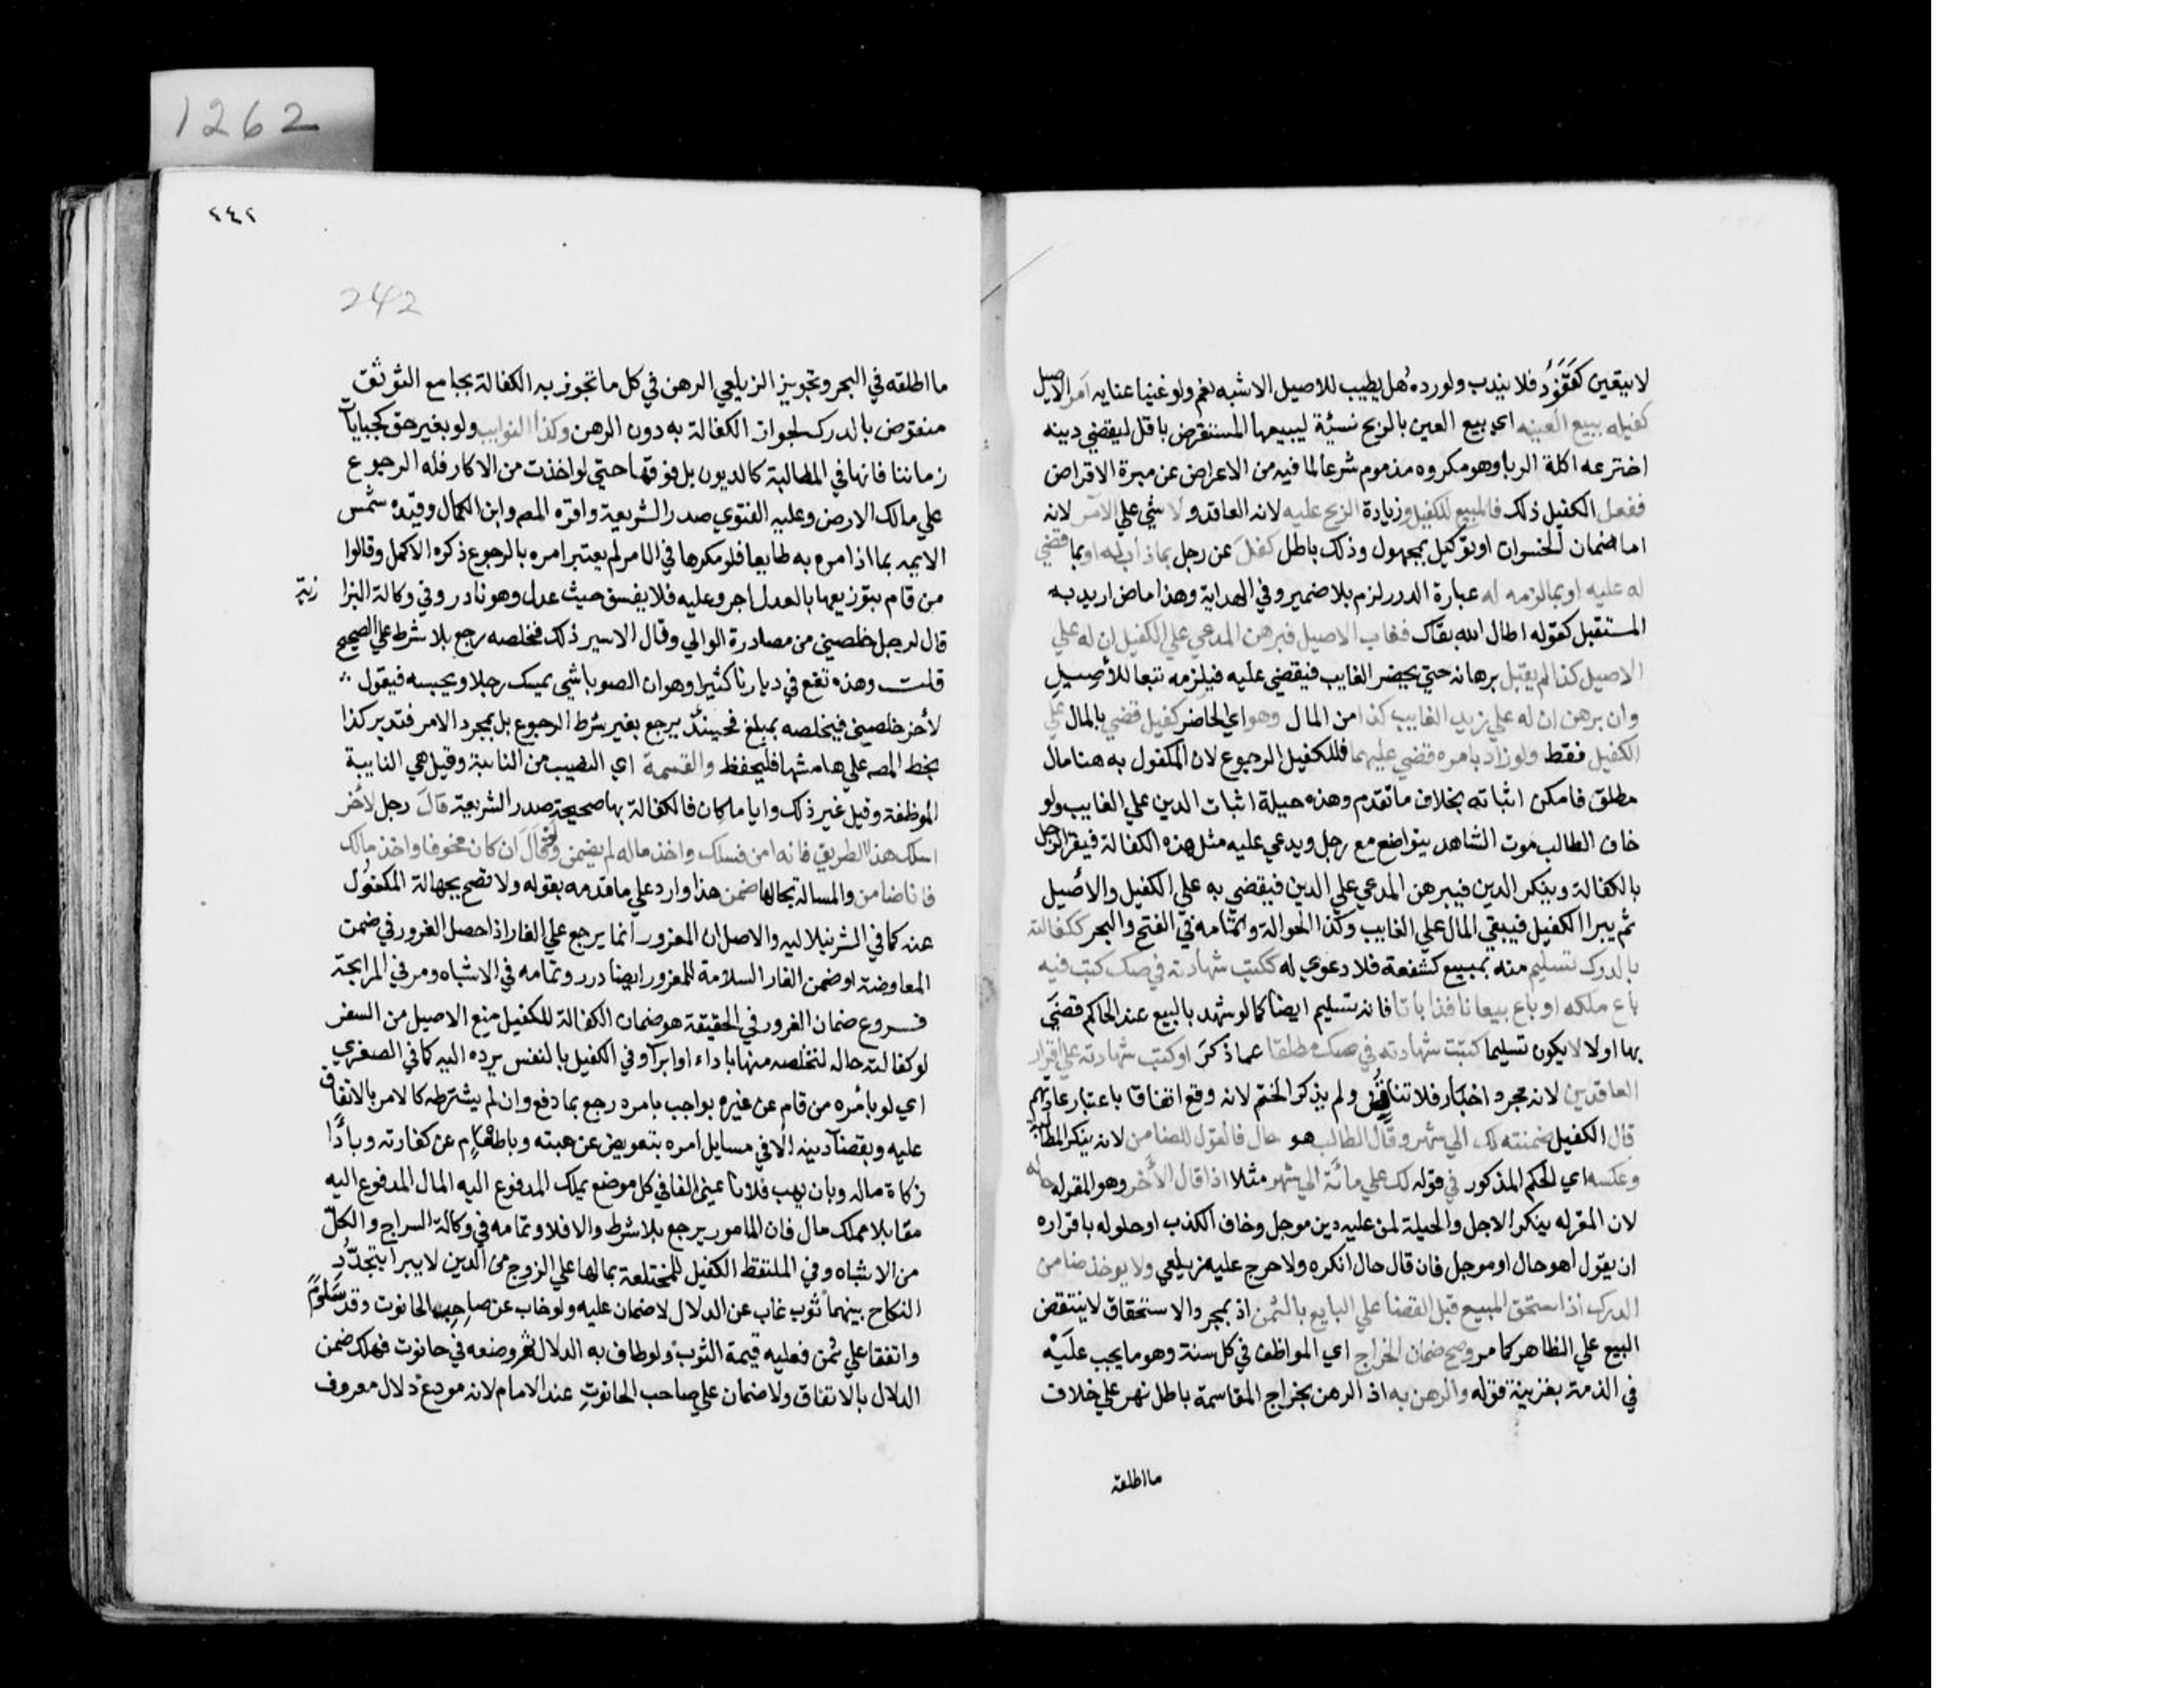 لا يتعين كنقود فلا يندب ولو رده هل يطيب للاصيل الاشبه نعم ولو غنيا عنايه امر الاصيل
كفيله ببيع العينه اي بيع العين بالربح نسئة ليبيعها المستقرض باقل ليقضي دينه
اخترعه اكلة الربا وهو مكروه مذموم شرعا لما فيه من الاعراض عن مبرة الاقراض
ففعل الكفيل ذلك فالمبيع للكفيل وزيادة الربح عليه لانه العاقد ولا شي علي الآمر لانه
اما ضمان الخسران او توكيل بمجهول وذلك باطل كفل عن رجل بما ذاب له او بما قضي
له عليه او بما لزمه له عبارة الدرر لزم بلا ضمير وفي الهداية وهذا ماض اريد به
المستقبل كقوله اطال الله بقاك فغاب الاصيل فبرهن المدعي علي الكفيل ان له علي
الاصيل كذا لم يقبل برهانه حتي يحضر الغايب فيقضي عليه فيلزمه تبعا للأصيل
وان برهن ان له علي زيد الغايب كذا من المال وهو اي الحاضر كفيل قضي بالمال علي
الكفيل فقط ولو زاد بامره قضي عليهما فللكفيل الرجوع لان المكفول به هنا مال
مطلق فامكن اثباته بخلاف ما تقدم وهذه حيلة اثبات الدين علي الغايب ولو
خاف الطالب موت الشاهد يتواضع مع رجل ويدعي عليه مثل هذه الكفالة فيقر الرجل
بالكفالة وينكر الدين فيبرهن المدعي علي الدين فيقضي به علي الكفيل والأصيل
ثم يبرا الكفيل فيبقي المال علي الغايب وكذا الحوالة وتمامه في الفتح والبحر ككفالته
بالدرك تسليم منه بمبيع كشفعة فلا دعوي له ككتب شهادته في صك كتب فيه
باع ملكه او باع بيعا نافذا باتا فانه تسليم ايضا كما لو شهد بالبيع عند الحاكم قضي
بها اولا لا يكون تسليما كتبت شهادته في صك مطلقا عما ذكر او كتب شهادته علي اقرار
العاقدين لانه مجرد اخبار فلا تناقض ولم يذكر الختم لانه وقع اتفاقا باعتبار عادتهم
قال الكفيل ضمنته لك الي شهر وقال الطالب هو حال فالقول للضامن لانه ينكر المطالبة
وعكسه اي الحكم المذكور في قوله لك علي مائة الي شهر مثلا اذا قال الآخر وهو المقر له حاله
لان المقر له ينكر الاجل والحيلة لمن عليه دين موجل وخاف الكذب او حلوله باقراره
ان يقول اهو حال او موجل فان قال حال انكره ولا حرج عليه زيلعي ولا يوخذ ضامن
الدرك اذا استحق المبيع قبل القضا علي البايع بالثمن اذ بمجرد الاستحقاق لا ينتقض
البيع علي الظاهر كما مر وصح ضمان الخراج اي المواظف في كل سنة وهو ما يجب عليه
في الذمة بقزينة قوله والرهن به اذ الرهن بخراج المقاسمة باطل نهر علي خلاف
ما اطلقه
1262
٢٤٢
242
ما اطلقه في البحر وتجويز الزيلعي الرهن في كل ما تجوز به الكفالة بجامع التوثق
منقوض بالدرك لجواز الكفالة به دون الرهن وكذا النوايب ولو بغير حق كجبايات
زماننا فانها في المطالبة كالديون بل فوقها حتي لو اخذت من الاكار فله الرجوع
علي مالك الارض وعليه الفتوي صدر الشريعة واقره المص وابن الكمال وقيده شمس
الايمه بما اذا امره به طايعا فلو مكرها في الامر لم يعتبر امره بالرجوع ذكره الاكمل وقالوا
من قام بتوزيعها بالعدل اجر وعليه فلا يفسق حيث عدل وهو نادر وفي وكالة البزا زيه
قال لرجل خلصني من مصادرة الوالي وقال الاسير ذلك فخلصه رجع بلا شرط علي الصحيح
قلت وهذه تقع في ديارنا كثيرا وهو ان الصوباشي يمسك رجلا ويحبسه فيقول
لأخر خلصني فيخلصه بمبلغ فحينئذ يرجع بغير شرط الرجوع بل بمجرد الامر فتدبر كذا
بخط المص علي هامشها فليحفظ والقسمة اي النصيب من النائبة وقيل هي النايبة
الموظفة وقيل غير ذلك وايا ما كان فالكفالة بها صحيحة صدر الشريعة قال رجل لأخر
اسلك هذا الطريق فانه امن فسلك واخذ ماله لم يضمن ولو قال ان كان مخوفا واخذ مالك
فانا ضامن والمسالة بحالها ضمن هذا وارد علي ما قدمه بقوله ولا تصح بجهالة المكفول
عنه كما في الشرنبلاليه والاصل ان المغرور انما يرجع علي الغار اذا حصل الغرور في ضمن
المعاوضة او ضمن الغار السلامة للمغرور ايضا درر وتمامه في الاشباه ومر في المرابحة
فروع ضمان الغرور في الحقيقة هو ضمان الكفالة للكفيل منع الاصيل من السفر
لو كفالته حاله لتخلصه منها باداء او ابراء وفي الكفيل بالنفس يرده اليه كما في الصغري
اي لو بأمره من قام عن غيره بواجب بامره رجع بما دفع وان لم يشترطه كالامر بالانفاق
عليه وبقضآ دينه الا في مسايل امره بتعويض عن هبته وباطعام عن كفارته وبادا
زكاة ماله وبان يهب فلانا عيني الفا في كل موضع يملك المدفوع اليه المال المدفوع اليه
مقابلا مملك مال فان المامور يرجع بلا شرط والا فلا وتمامه في وكالة السراج والكل
من الاشباه وفي الملتقط الكفيل للمختلعة بمالها علي الزوج من الدين لا يبرا بتجدد
النكاح بينهما ثوب غاب عن الدلال لا ضمان عليه ولو غاب عن صاحب الحانوت وقد سلوم
واتفقا علي ثمن فعليه قيمة الثوب ولو طاف به الدلال ثم وضعه في حانوت فهلك ضمن
الدلال بالاتفاق ولا ضمان علي صاحب الحانوت عند الامام لانه مودع دلال معروف